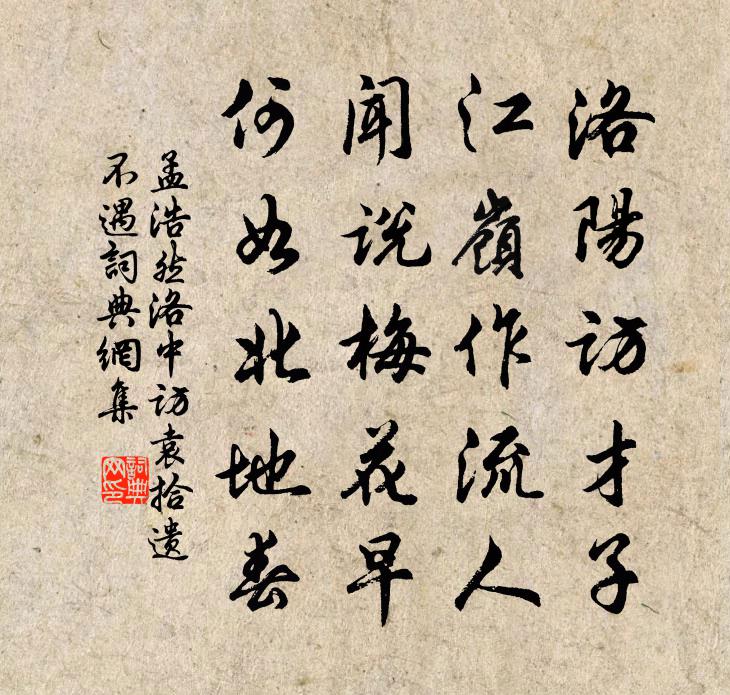 洛陽訪才子
江嶺作流人
聞説梅花早
何如北地春
孟浩然洛中訪袁拾遺
不遇詞典網集
詞典网印